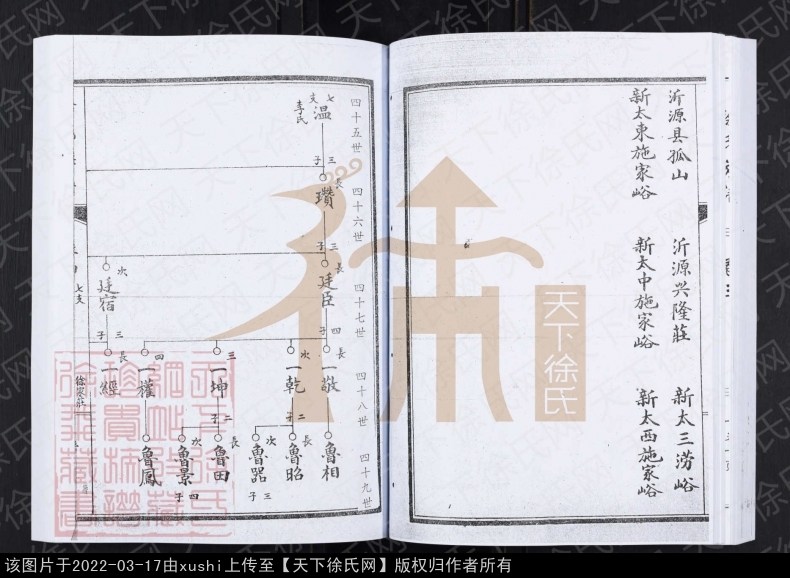 沂源县孤山
沂源兴隆莊
新太三涝峪
新太東施家峪
新太中施家峪
新太西施家峪
四十五世
四十六世
四十七世
四十八世
四十九世
七支
温
李氏
三子
長
瓚
三子
長
廷臣
四子
次
廷宿
三子
長
一敬
次
一乾
二子
三
一坤
二子
四
一權
長
一經
魯相
長
魯昭
次
魯器
三子
長
魯田
次
魯景
四子
魯鳳
七支
徐家莊
天下徐氏
天下徐氏网
该图片于2022-03-17由xushi上传至【天下徐氏网】版权归作者所有